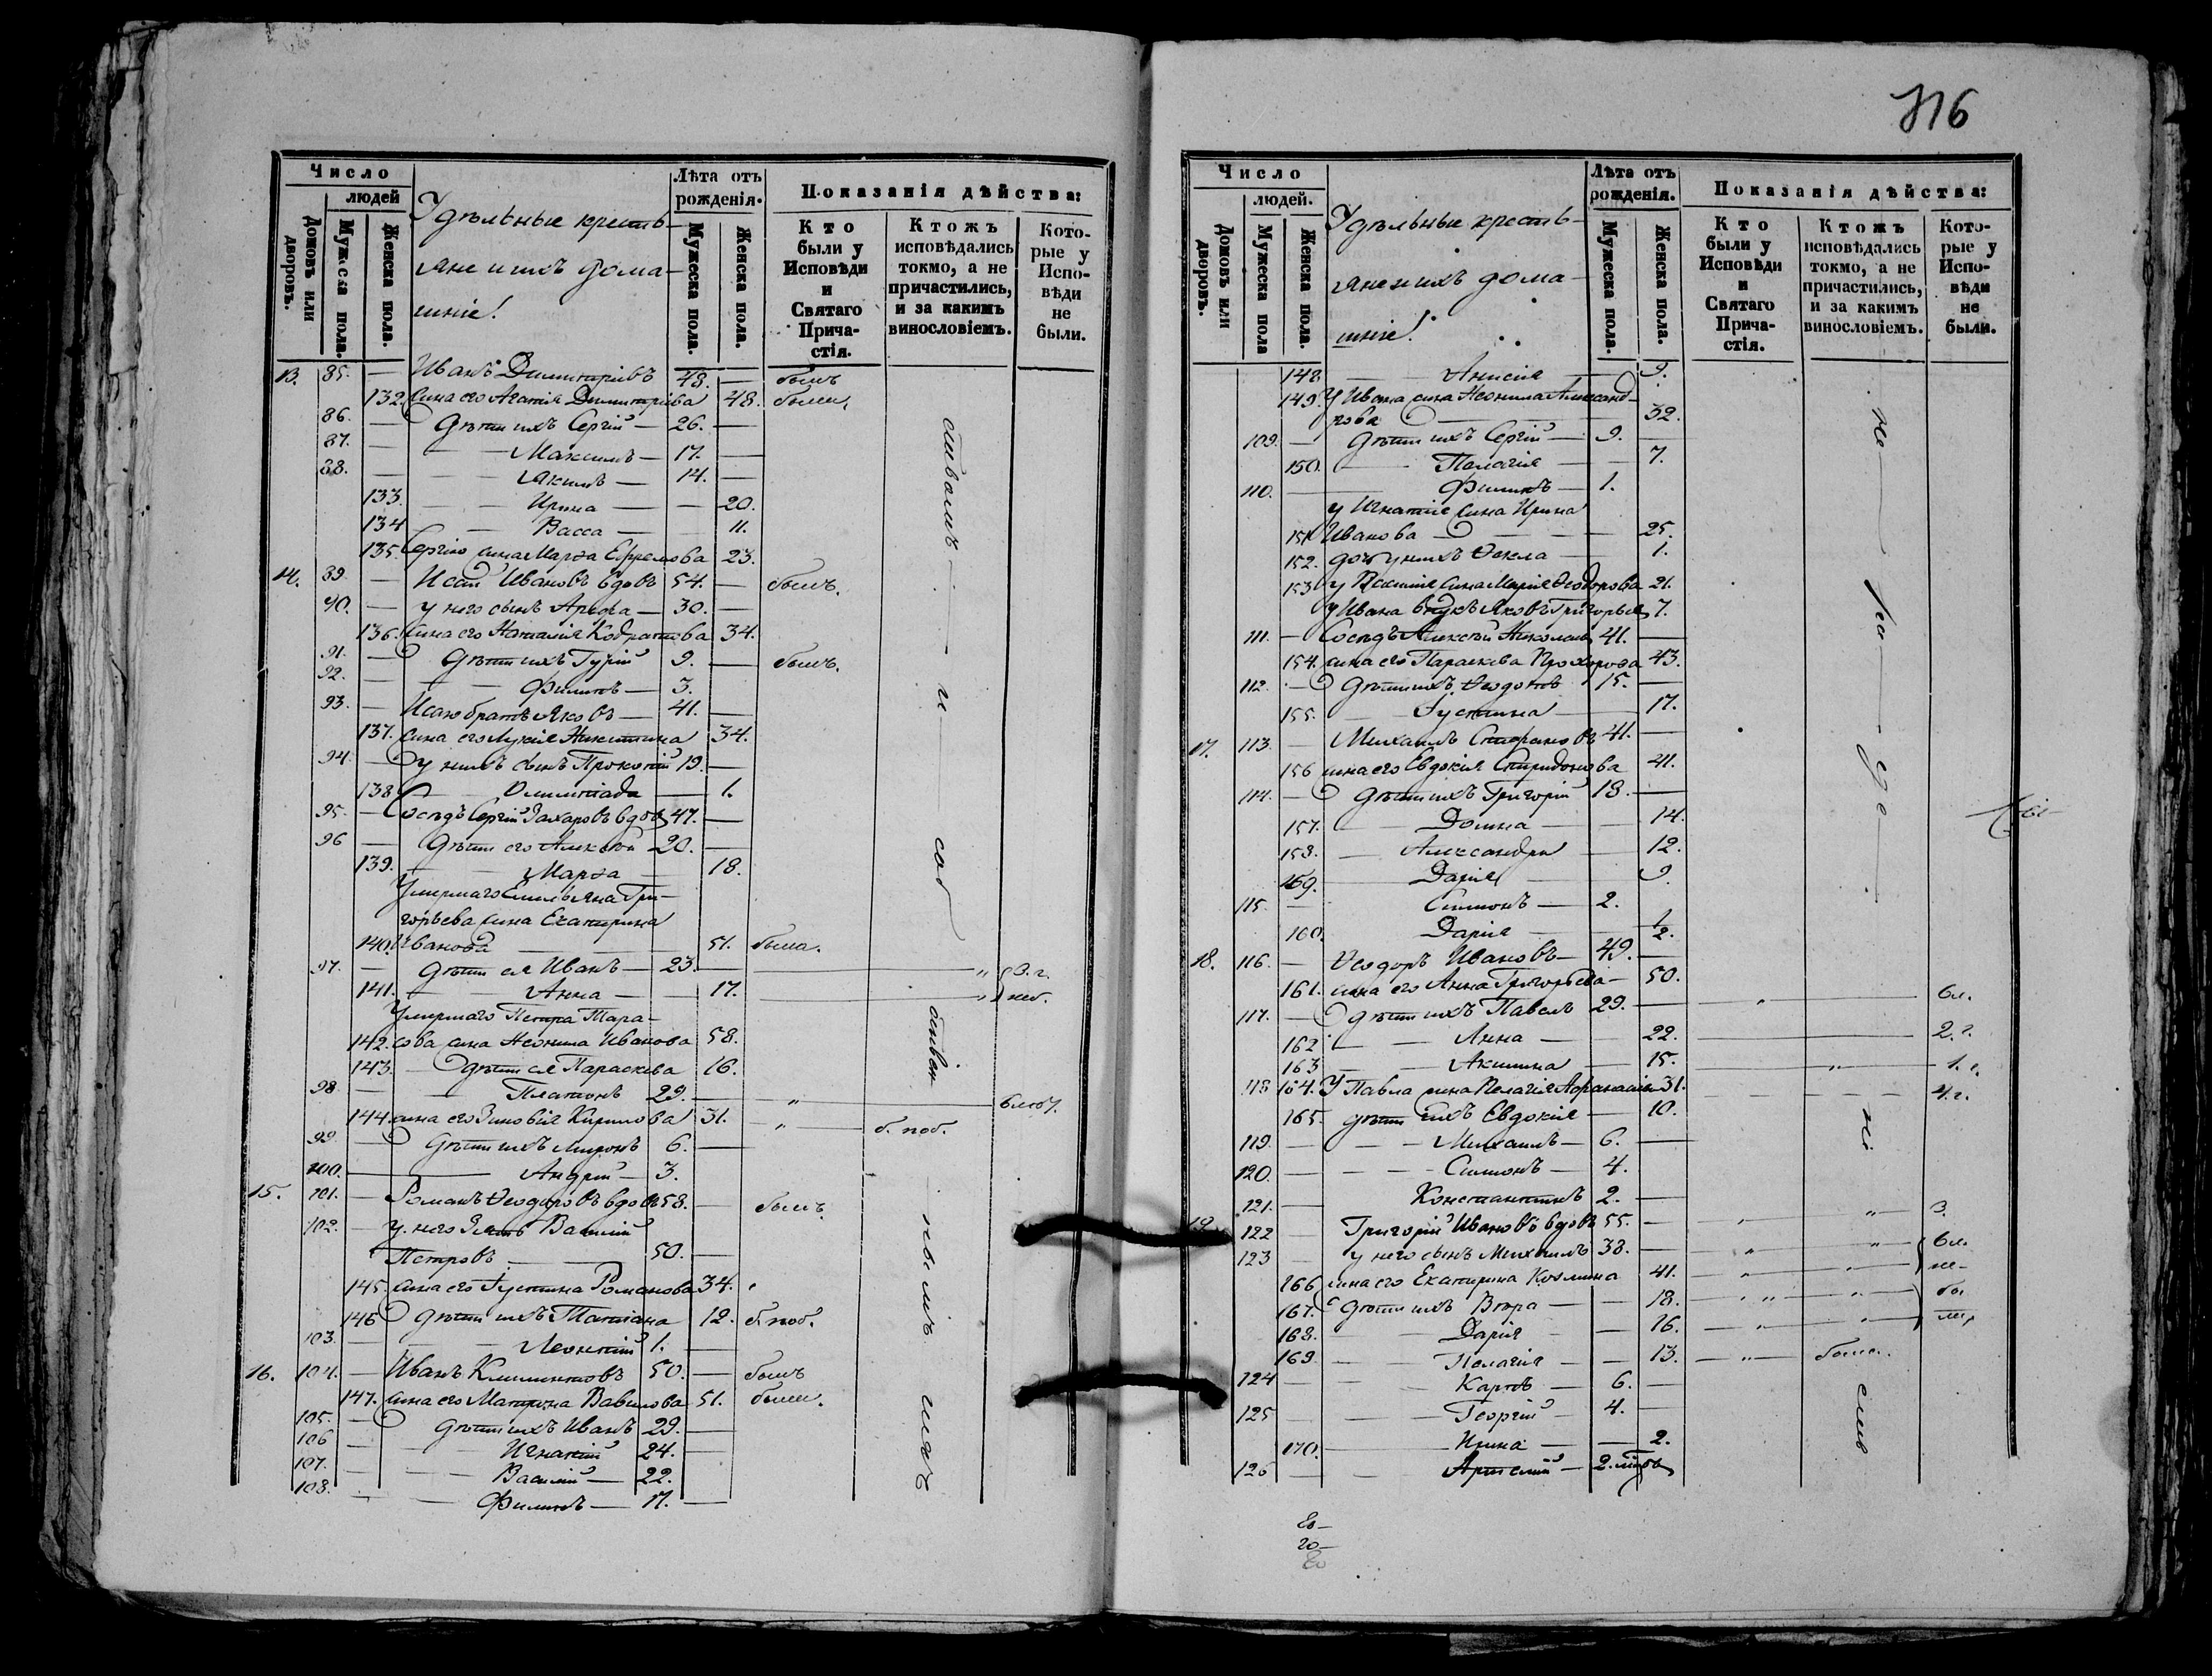 Число
людей
Домовъ или дворовъ.
Мужеска пола.
Женска пола.
Удѣльные кресть-
яне и ихъ дома-
шніе!
Лѣта отъ рожденія.
Мужеска пола.
Женска пола.
Показанія дѣйства:
Кто были у Исповѣди и Святаго Прича-стія.
Ктожъ исповѣдались токмо, а не причастились, и за какимъ винословіемъ.
Кото-рые у Испо-вѣди не были.
13. 85. — Иванъ Димитріевъ 48. — былъ
132. жена его Агапія Димитріева 48. была.
86. — Дѣти ихъ Сергій — 26. —
87. — Максимъ — 17. —
88. — Якимъ — 14. —
133. Ирина — 20.
134 Васса — 11.
135. Сергію жена Марѳа Ефремова 23.
14. 89. — Исай Ивановъ вдовъ 54. — былъ.
90. — у него сынъ Арефа — 30. —
136. жена его Наталія Кодратова 34.
91. — Дѣти ихъ Гурій 9. — былъ.
92. — Филипъ — 3.
93. — Исаю братъ Яковъ — 41. —
137. жена его Лукія Никитина 34.
94. — У нихъ сынъ Прокопій 19. —
138. Олимпіада — 1.
95. — Сосѣдъ Сергій Захаровъ вдовъ 47. —
96 — Дѣти его Алексѣй 20. —
139. Марѳа — 18.
Умершаго Емельяна Гри-
горьева жена Екатерина
140. Иванова — 51. была.
97. — Дѣти ея Иванъ — 23. — 3. г.
141. — Анна — 17. неб.
Умершаго Петра Тара-
142. сова жена Неонила Иванова 58.
143. — Дѣти ея Параскева 16.
98. — Платонъ 29. —
144. жена его Зиновія Кирилова 31. б. поб.
99. — Дѣти ихъ Миронъ 6. —
100. — Андрій — 3.
15. 101. — Романъ Ѳеодоровъ вдовъ 58. — былъ.
102. — у него Зять Василій
Петровъ — 50. —
145. жена его Іустина Романова 34.
146 Дѣти ихъ Татіана 12. б. поб.
103. — Леонтій 1. —
16. 104. — Иванъ Климентовъ 50. — былъ
147. жена его Матрона Вавилова 51. была.
105. — Дѣти ихъ Иванъ 29. —
106 — Игнатій 24. —
107. — Василій — 22. —
108. — Филипъ — 17. —
и
316
Число
людей.
Домовъ или дворовъ.
Мужеска пола
Женска пола.
Удѣльные кресть-
яне и ихъ дома-
шніе!
Лѣта отъ рожденія.
Мужеска пола.
Женска пола.
Показанія дѣйства:
Кто были у Исповѣди и Святаго Прича-стія.
Ктожъ исповѣдались токмо, а не причастились, и за какимъ винословіемъ.
Кото-рые у Испо-вѣди не были.
148 — Анисія — 9.
149 У Ивана жена Неонила Александ-
рова 32.
109. — Дѣти ихъ Сергій — 9. —
150. — Пелагія — 7.
110. — Филипъ — 1.
у Игнатія жена Ирина
151 Иванова — 25.
152. дочь у нихъ Ѳекла — 1.
153 у Василія жена Марія Ѳеодорова 21.
У Ивана внукъ Яковъ Григорьевъ 7.
111. — Сосѣдъ Алексѣй Николаевъ 41. —
154. жена его Параскева Прохорова 43.
112. — Дѣти ихъ Ѳеодотъ 15. —
155. Іустина — 17.
17. 113. — Михаилъ Стефановъ 41. —
156 жена его Евдокія Спиридонова 41.
114. — Дѣти ихъ Григорій 18. —
157. Домна — 14.
158. — Александра — 12.
159. Дарія 9.
115. — Симіонъ — 2.
160. Дарія — 1/2.
18. 116. — Ѳеодоръ Ивановъ — 49. —
161. жена его Анна Григорьева — 50.
117. — Дѣти ихъ Павелъ 29. — 6л.
162 — Анна — 22. 2. г.
163 Акилина — 15. 1. г.
118 164. У Павла жена Пелагія Афанасіева 31. 4. г.
165. дѣти ихъ Евдокія — 10.
119. — Михаилъ — 6. —
120. — Симіонъ — 4.
121. — Константинъ 2. —
19. 122 — Григорій Ивановъ вдовъ 55. — 3.
123 — у него сынъ Михаилъ 38. — 6л.
166 жена его Екатерина Козмина 41.
167. Дѣти ихъ Вѣра — 18.
168. Дарія — 16.
169. — Пелагія — 13. была.
124 — Карпъ — 6. —
125 — Георгій — 4. —
170. Ирина — 2.
126 — Артемій — 2.